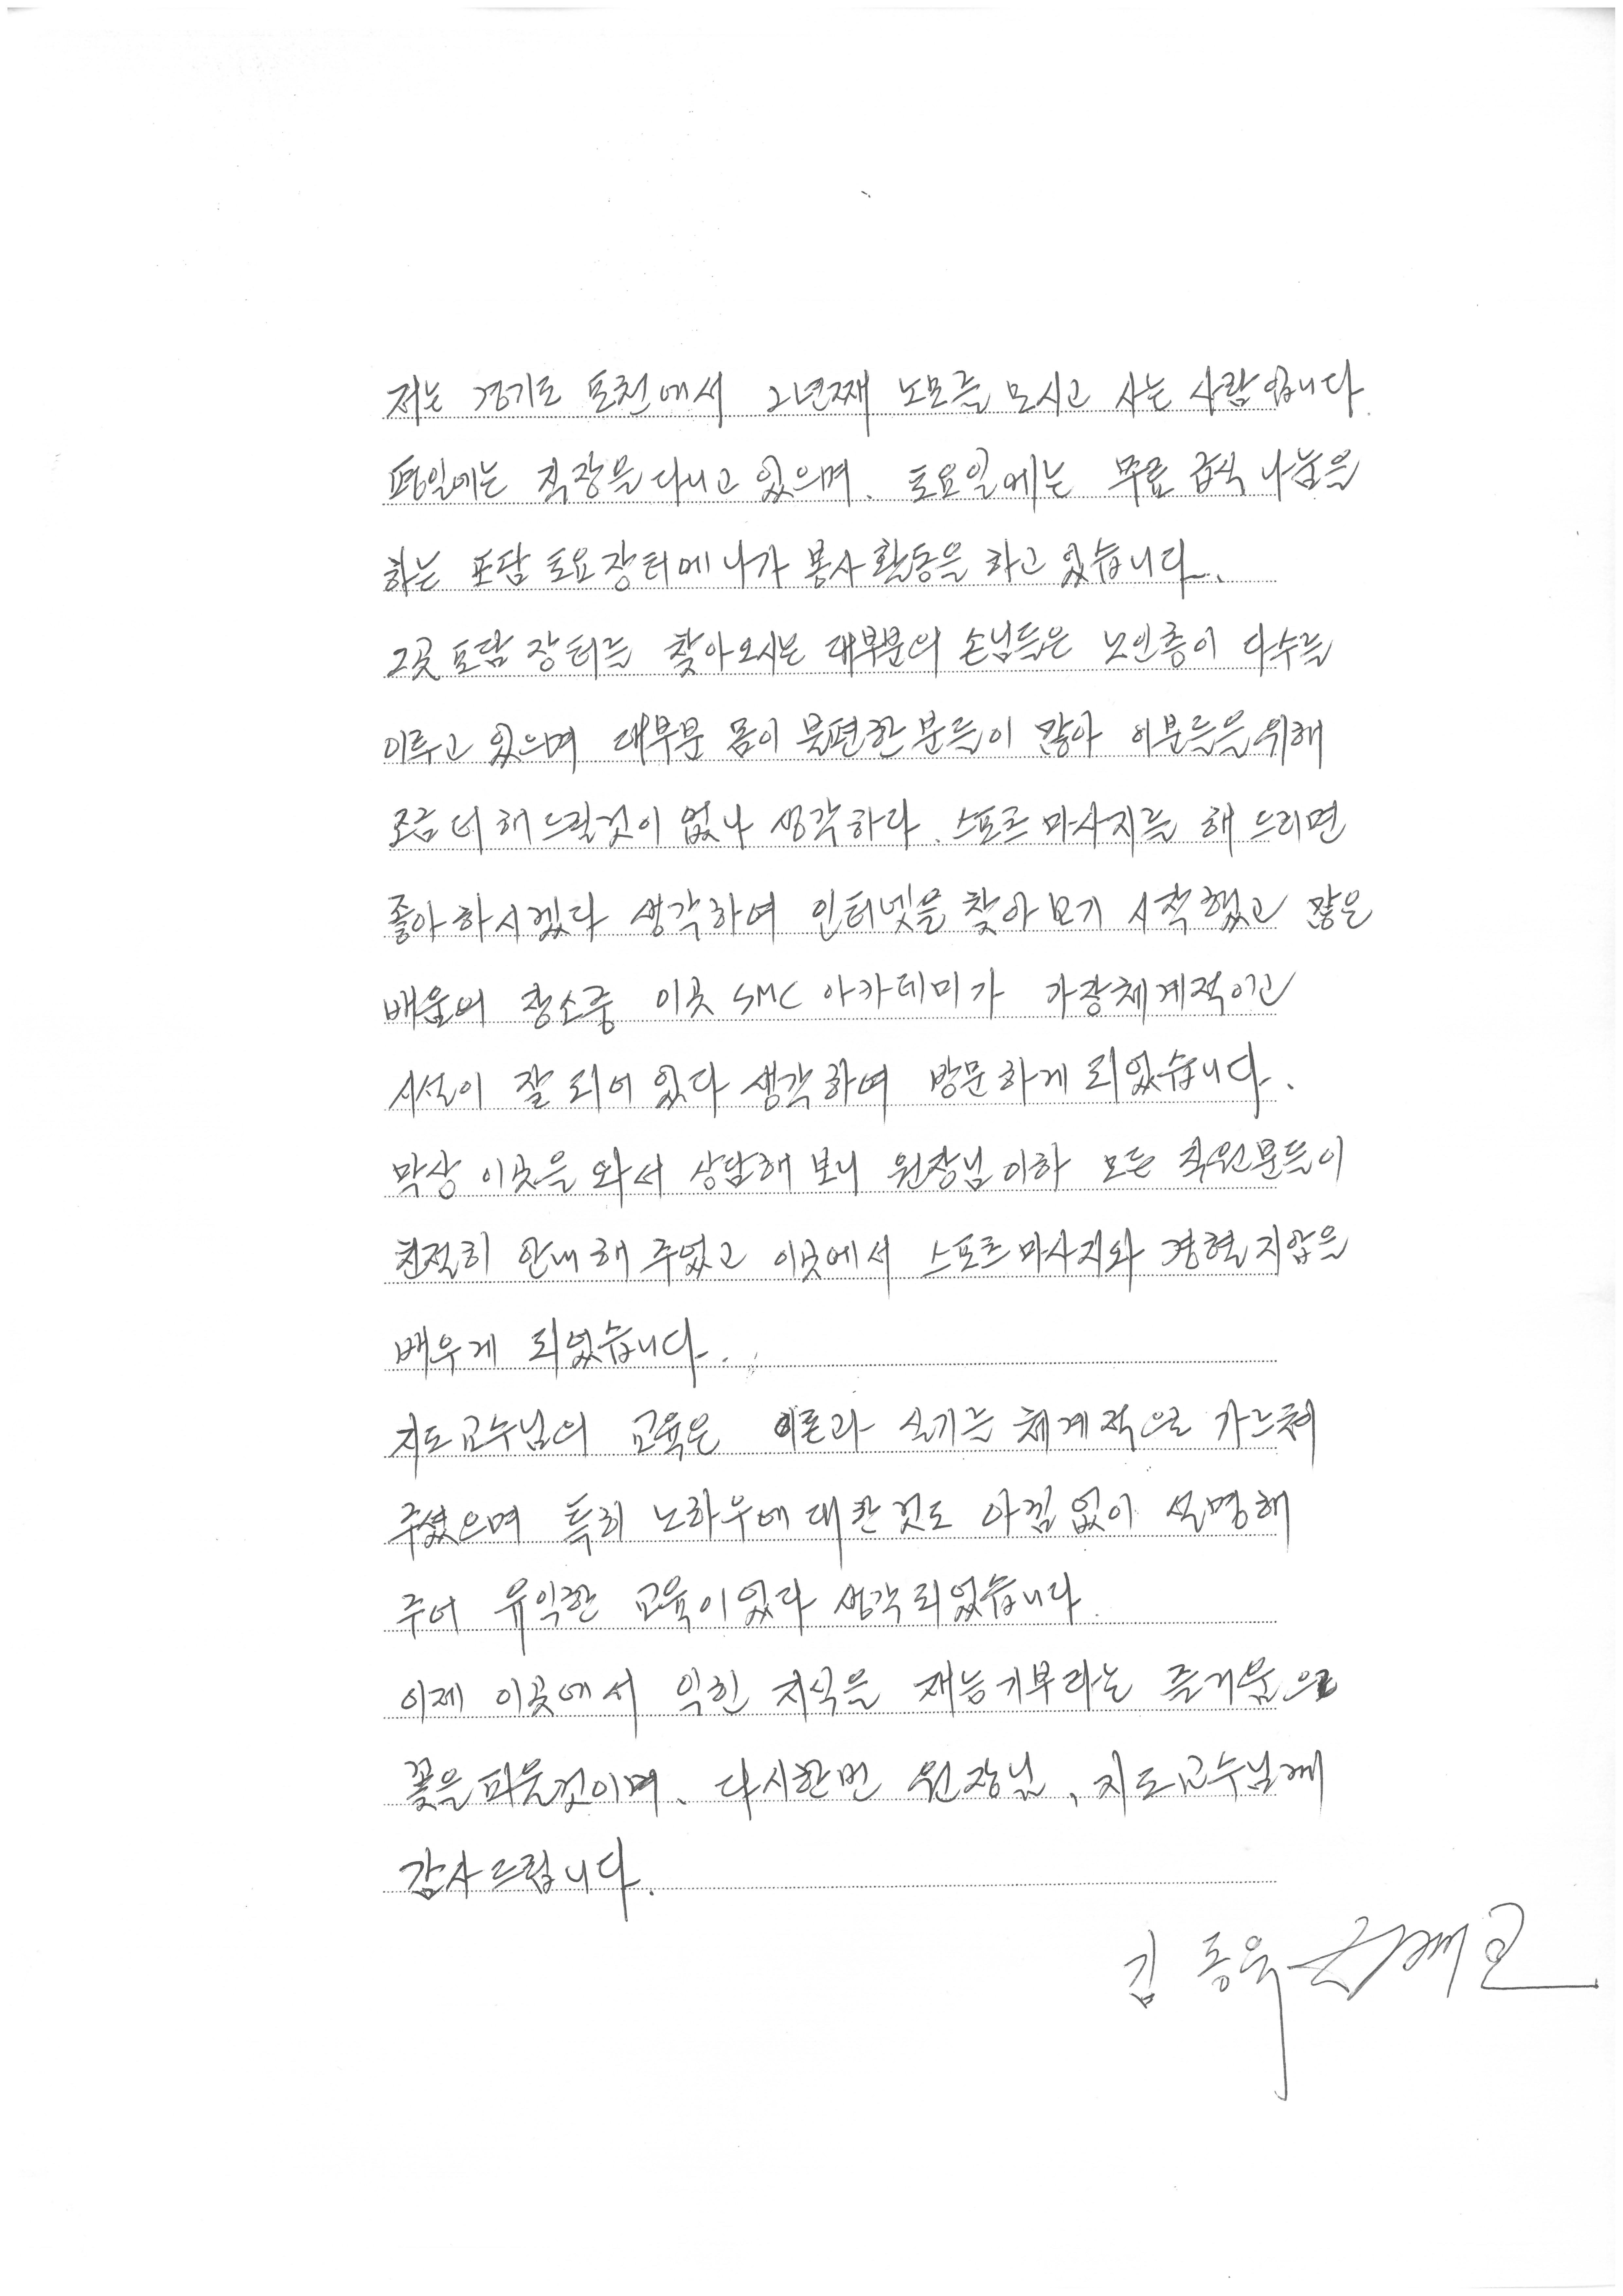 저는 경기도 포천에서 2년째 노모를 모시고 사는 사람입니다.
평일에는 직장을 다니고 있으며, 토요일에는 무료 급식 나눔을
하는 포담 토요장터에 나가 봉사활동을 하고 있습니다.
그곳 포담 장터를 찾아오시는 대부분의 손님들은 노인층이 다수를
이루고 있으며 대부분 몸이 불편한 분들이 많아 이분들을 위해
조금 더 해 드릴것이 없나 생각하다, 스포츠 마사지를 해 드리면
좋아하시겠다 생각하여 인터넷을 찾아보기 시작했고 많은
배움의 장소중 이곳 SMC 아카데미가 가장체계적이고
시설이 잘 되어 있다 생각하여 방문하게 되었습니다.
막상 이곳을 와서 상담해 보니 원장님 이하 모든 직원분들이
친절히 안내해 주었고 이곳에서 스포츠마사지와 경혈지압을
배우게 되었습니다.
지도교수님의 교육은 이론과 실기를 체계적으로 가르쳐
주셨으며 특히 노하우에 대한것도 아낌없이 설명해
주어 유익한 교육이었다 생각되었습니다.
이제 이곳에서 익힌 지식을 재능기부라는 즐거움으로
꽃을 피울것이며, 다시한번 원장님, 지도교수님께
감사드립니다.
김동욱